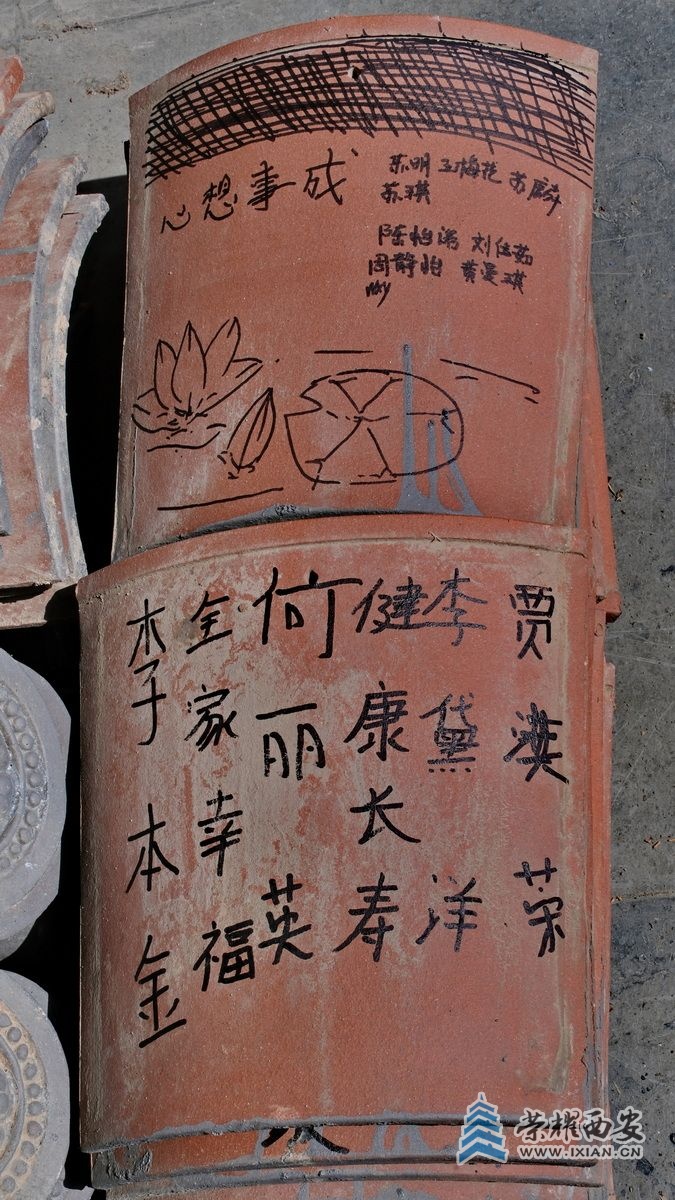 心想事成
苏明 王梅花 苏麟
苏琪
陈怡诺 刘佳茹
周静怡 黄曼琪
李本金
全家幸福
何丽英
健康长寿
李黛洋
贾漢荣
荣耀西安
WWW.IXIAN.CN